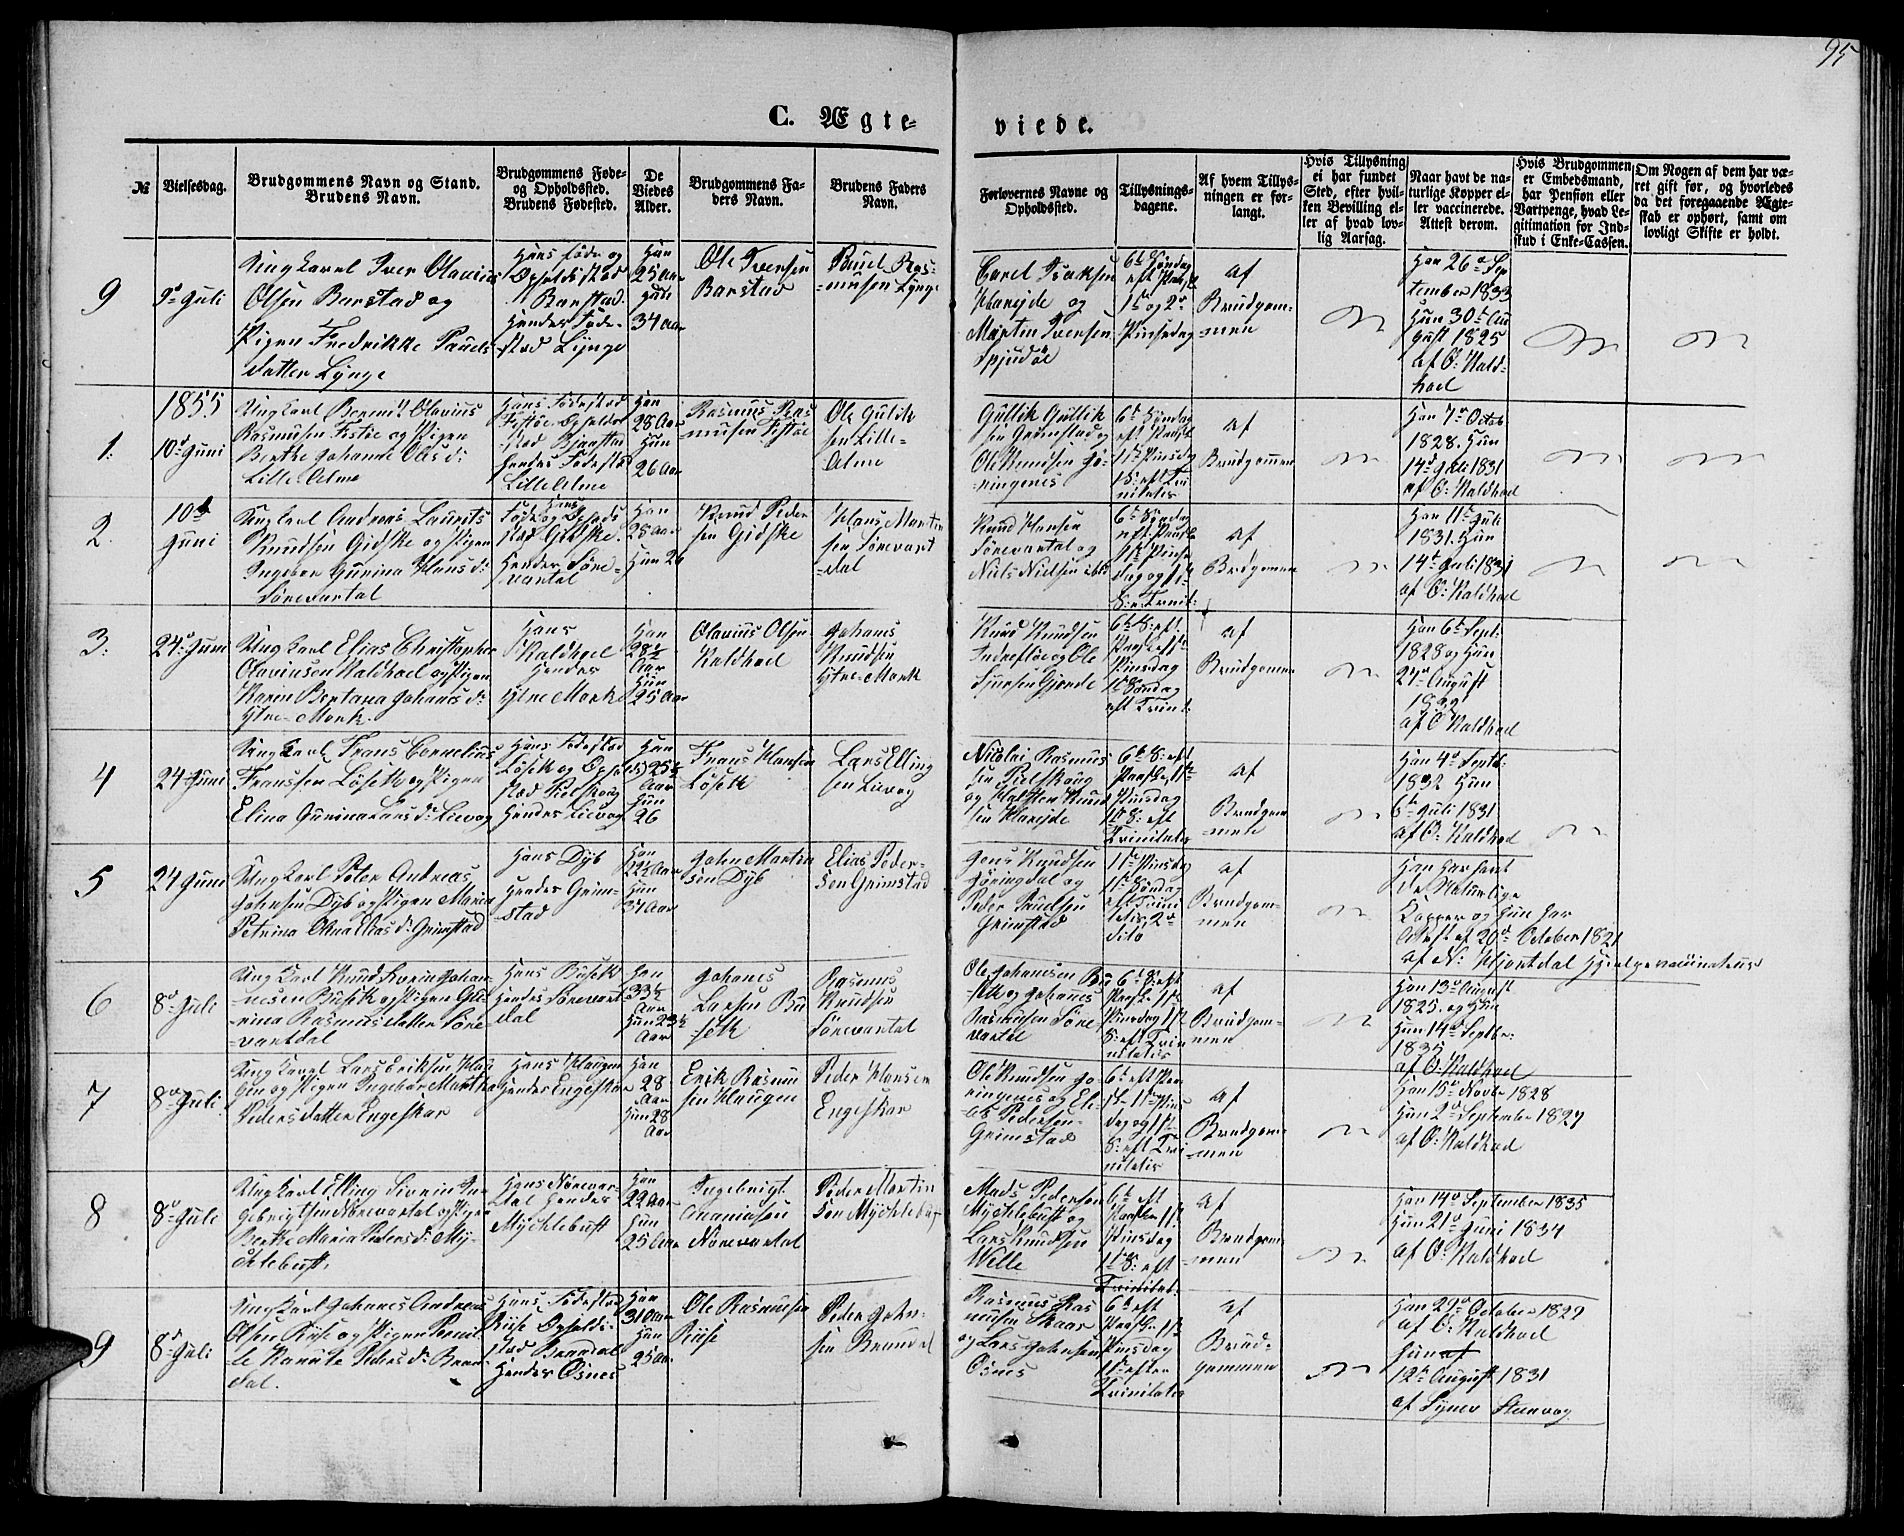 95
C. Ægte-
viede.
№
Vielsesdag.
Brudgommens Navn og Stand.
Brudens Navn.
Brudgommens Føde-
og Opholdssted.
Brudens Fødested.
De
Viedes
Alder.
Brudgommens Fa-
ders Navn.
Brudens Faders
Navn.
Forlovernes Navne og
Opholdssted.
Tillysnings-
dagene.
Af hvem Tillys-
ningen er for-
langt.
Hvis Tillysning
ei har fundet
Sted, efter hvil-
ken Bevilling el-
ler af hvad lov-
lig Aarsag.
Naar havt de na-
turlige Kopper el-
ler vaccinerede.
Attest derom.
Hvis Brudgommen
er Embedsmand,
har Pension eller
Vartpenge, hvad Le-
gitimation for Ind-
skud i Enke-Cassen.
Om Nogen af dem har væ-
ret gift før, og hvorledes
da det foregaaende Ægte-
skab er ophørt, samt om
lovligt Skifte er holdt.
9
9de Juli
Ungkarl Iver Olavius
Olsen Barstad og
Pigen Fredrikke Pauels
datter Lynge
Hans Føde og
Opholdsstad
Barstad
Hendes Føde-
stad Lynge
Han
25 Aar
Hun
34 Aar
Ole Iversen
Barstad
Pauel Ras-
musen Lynge
Carel Isaksen
Hareide og
Martin Iversen
6te Søndag
eft Paaske
1ste og 2de
Pinsedag
af
Brudgom-
men
Han 26de Sep
tember 1833
Hun 30te Au
gust 1825
af O: Kald-
hol
1855
1.
10de Juni
Ungkarl Berent Olavius
Rasmusen Festøe og Pigen
Berthe Johanne Olsd:
Lille Alme
Hans Fødestad
Festøe Opholds
stad Barstad
Hendes Fødested
Lille Alme
Han
28 Aar
Hun
26 Aar
Rasmus Ras
musen Festøe
Ole Gulik
sen Lille-
Alme
Gullik Gullik
sen Grimstad og
Ole Knudsen Hø-
ringenes
6te Søndag
eft Paaske
1ste Pinsdag
1 S: eft Tri
nitatis
af
Brudgommen
Han 7de Octob
1828. Hun
14de Juli 1831
af O: Kaldhol
2.
10de
Juni
Ungkarl Andreas Laurits
Knudsen Gidske og Pigen
Ingebor Gurina Hansd:
Sørevartal
Hans
Føde og Opholds
stad Gidske.
Hendes Søre-
vartal
Han
25 Aar
Hun 26
Knud Peder
sen Gidske
Hans Martin
sen Sørevart
dal
Knud Hansen
Sørevartal og
Niels Nielsen
6te Søndag
eft: Paaske
1ste Pinse
dag og 1ste
S: e Trinit:
af
Brudgommen
Han 11te Juli
1831. Hun
14de Juli 1831
af O: Kaldhol
3:
24de Juni
Ungkarl Elias Christopher
Olaviusen Kaldhol og Pigen
Karen Bertana Johansd:
Ytre-Mork.
Hans
Kaldhol
Hendes
Ytre Mork
Han
28½
Aar
Hun
25 Aar
Olavius Olsen
Kaldhol
Johanes
Knudsen
Ytre-Mork
Knud Knudsen
Indrefløe og Ole
Sjursen Gjerde
6te S: eft.
Paaske 1ste
Pinsdag
1 Søndag
eft Trinit:
af
Brudgommen
Han 6te Sept:
1828 og Hun
27de August
1832
af O Kaldhol
4
24 Juni
Ungkarl Frans Cornelius
Franssen Løseth og Pigen
Elina Gurina Larsd: Lievog
Hans Fødestad
Løseth og Ophold
stad
Hendes Lievog
25½
Aar
Hun
26
Frans Hansen
Løseth
Lars Elling
sen Lievog
Nicolai Rasmus
sen
og Halsten Knud
sen Hareide
6te S: eft
Paaske 1ste
Pinsdag
1ste S: eft
Trinitatis
af
Brudgom
mene
Han 4de Septb:
1832 Hun
6te Juli 1831
af O: Kaldhol
5
24 Juni
Ungkarl Peter Andreas
Johnsen Dyb og Pigen Maria
Petrina Eliasd: Grimstad
Hans Dyb
Hendes Grim-
stad
Han
22½ Aar
Hun
34 Aar
John Martin
sen Dyb
Elias Peder-
sen Grimstad
Jens Knudsen
Høringdal og
Peder Pauelsen
Grimstad
1ste Pinsdag
1ste Søndag
eft Trini
tatis, 2de
dito
af
Brudgom-
men
Han har havt
de Naturlige
Kopper og Hun har
Attest af 20de October 1821
af N: Hjortdal Hjelpevaccinateur
6
8de Juli
Ungkarl Knud Severin Johan-
nesen Buseth og Pigen Gu-
rina Rasmusdatter Søre-
vartdal
Hans Buseth
Hendes Sørevart
dal
Han
33½
Aar
Hun 23½
Aar
Johanes
Larsen Bu
seth
Rasmus
Knudsen
Sørevartal
Ole Johannesen Bu
seth og Johannes
Rasmusen Søre
vartal
6te S: eft
Paaske 1ste
Pinsdag 1ste
S: eft Trin
itatis
af
Brudgom-
men
Han 13de August
1825. og Hun
Hun 14de Septbr.
1835
af O: Kaldhol
7
8de Juli
Ungkarl Lars Eriksen Hau
gen og Pigen Ingebor Martha
Pedersdatter Engeskar
Hans Haugen
Hendes Engeskar
Han
28
Aar
Hun 28
Aar
Erik Rasmu
sen Haugen
Peder Hansen
Engeskar
Ole Knudsen Hø-
ringenes og Eli-
as Pedersen
Grimstad
6te eft Paa-
1ste Pins
dag og 1ste
S: eft Tri
nitatis
af
Brudgom-
men
Han 15de Novbr 1828
Hun 2de September 1827
af O: Kaldhol
8
8de Juli
Ungkarl Elling Sivrin In-
gebrigtsen Nørevartal og Pigen
Berthe Maria Pedersd: My-
cklebust.
Hans Nørevar-
dal Hendes
Mycklebust
Han
22 Aar
Hun
25 Aar
Ingebrigt
Ananiasen
Nørevartal
Peder Martin
sen Mycklebust
Mads Pedersen
Mycklebust og
Lars Knudsen
Welle
6te eft
Paaske 1ste
Pinsdag
1ste S: eft
Trinitat:
af
Brudgom
men
Han 14de September 1835
Hun 21de Juni 1834
af O: Kaldhol
9
8de Juli
Ungkarl Johanes Andreas
Olsen Riise og Pigen Pernil-
le Kanute Pedersd: Bran-
dal.
Hans Fødestad
Riise Opholds-
stad Brandal
Hendes Osnes
Han
31 Aar
Hun
25 Aar
Ole Rasmusen
Riise
Peder John-
sen Brandal
Rasmus Ras
musen Skaar
og Lars Johnsen
Osnes
6te eft
Paaske 1ste
Pinsdag
1ste efter
Trinitatis
af
Brud-
gommen
Han 29de October 1822
af O: Kaldhol
Hun af
12te August 1831
af Synev Steenvog